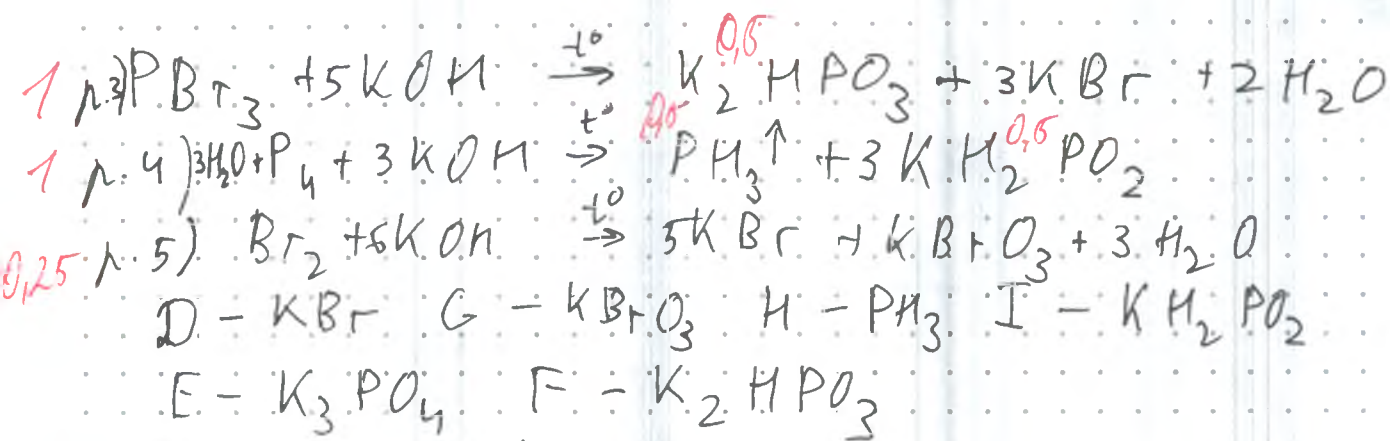 1 р.3) PBr₃ + 5KOH t°→ K₂HPO₃ 0,5 + 3KBr + 2H₂O
1 р.4) 3H₂O + P₄ + 3KOH t°→ 0,5 PH₃↑ + 3KH₂PO₂ 0,5
0,25 р.5) Br₂ + 6KOH t°→ 5KBr + KBrO₃ + 3H₂O
D - KBr G - KBrO₃ H - PH₃ I - KH₂PO₂
E - K₃PO₄ F - K₂HPO₃